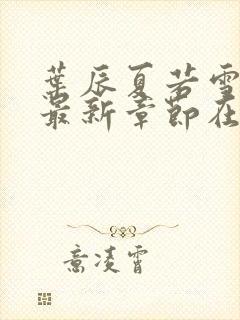 叶辰夏若雪
最新章节在
意凌霄